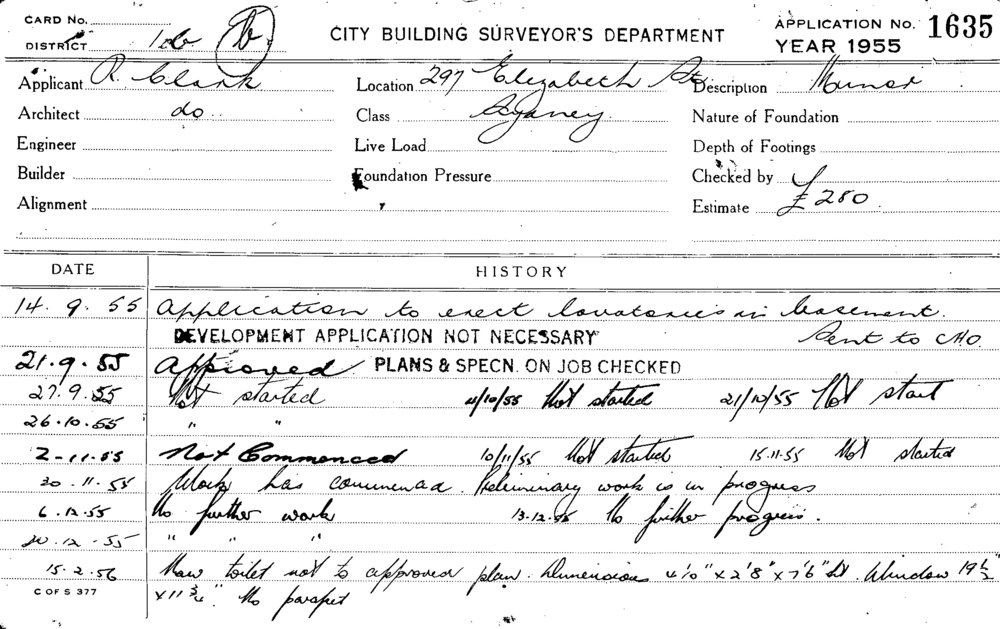 CARD No.
DISTRICT
CITY BUILDING SURVEYOR'S DEPARTMENT
APPLICATION No. 1635
YEAR 1955
Applicant R. Clark Location 297 Elizabeth St Description Minor
Architect do Class Sydney Nature of Foundation
Engineer Live Load Depth of Footings
Builder Foundation Pressure Checked by
Alignment Estimate £280
DATE HISTORY
14.9.55 Application to erect lavatories in basement.
DEVELOPMENT APPLICATION NOT NECESSARY Sent to CHO
21.9.55 Approved. PLANS & SPECN. ON JOB CHECKED
27.9.55 Not started 4/10/55 Not started 21/10/55 Not start
26.10.55 " "
2-11.55 Not Commenced 10/11/55 Not started 15.11.55 Not started
30.11.55 Work has commenced. Preliminary work is in progress
6.12.55 No further work 13.12.55 No further progress.
20.12.55 " " "
15.2.56 New toilet not to approved plan. Dimensions 4'10" x 2'8" x 7'6" ht. Window 19½"
C OF S 377 x 11¾". No parapet